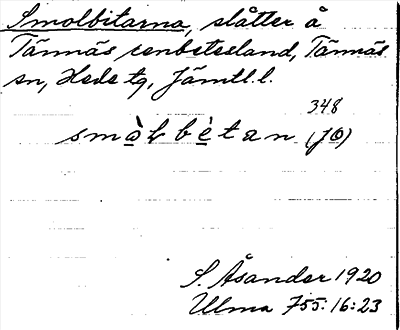 Smolbitarna, slåtter å
Tännäs renbetesland, Tännäs
sn, Hede tg, Jämtl. l.
348
smòlbètan (JÖ)
S. Åsander 1920
Ulma 755:16:23